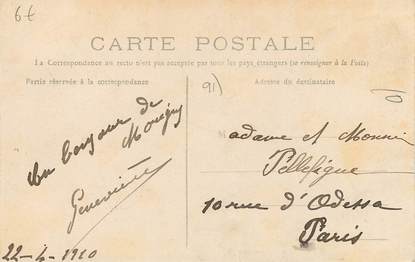 6€
CARTE POSTALE
La Correspondance au recto n'est pas acceptée par tous les pays étrangers (se renseigner à la Poste)
Partie réservée à la correspondance
Adresse du destinataire
91)
Un bonjour de
Geneviève
22-4-1910
Madame et Monsieur
Pellefigue
10 rue d'Odessa
Paris